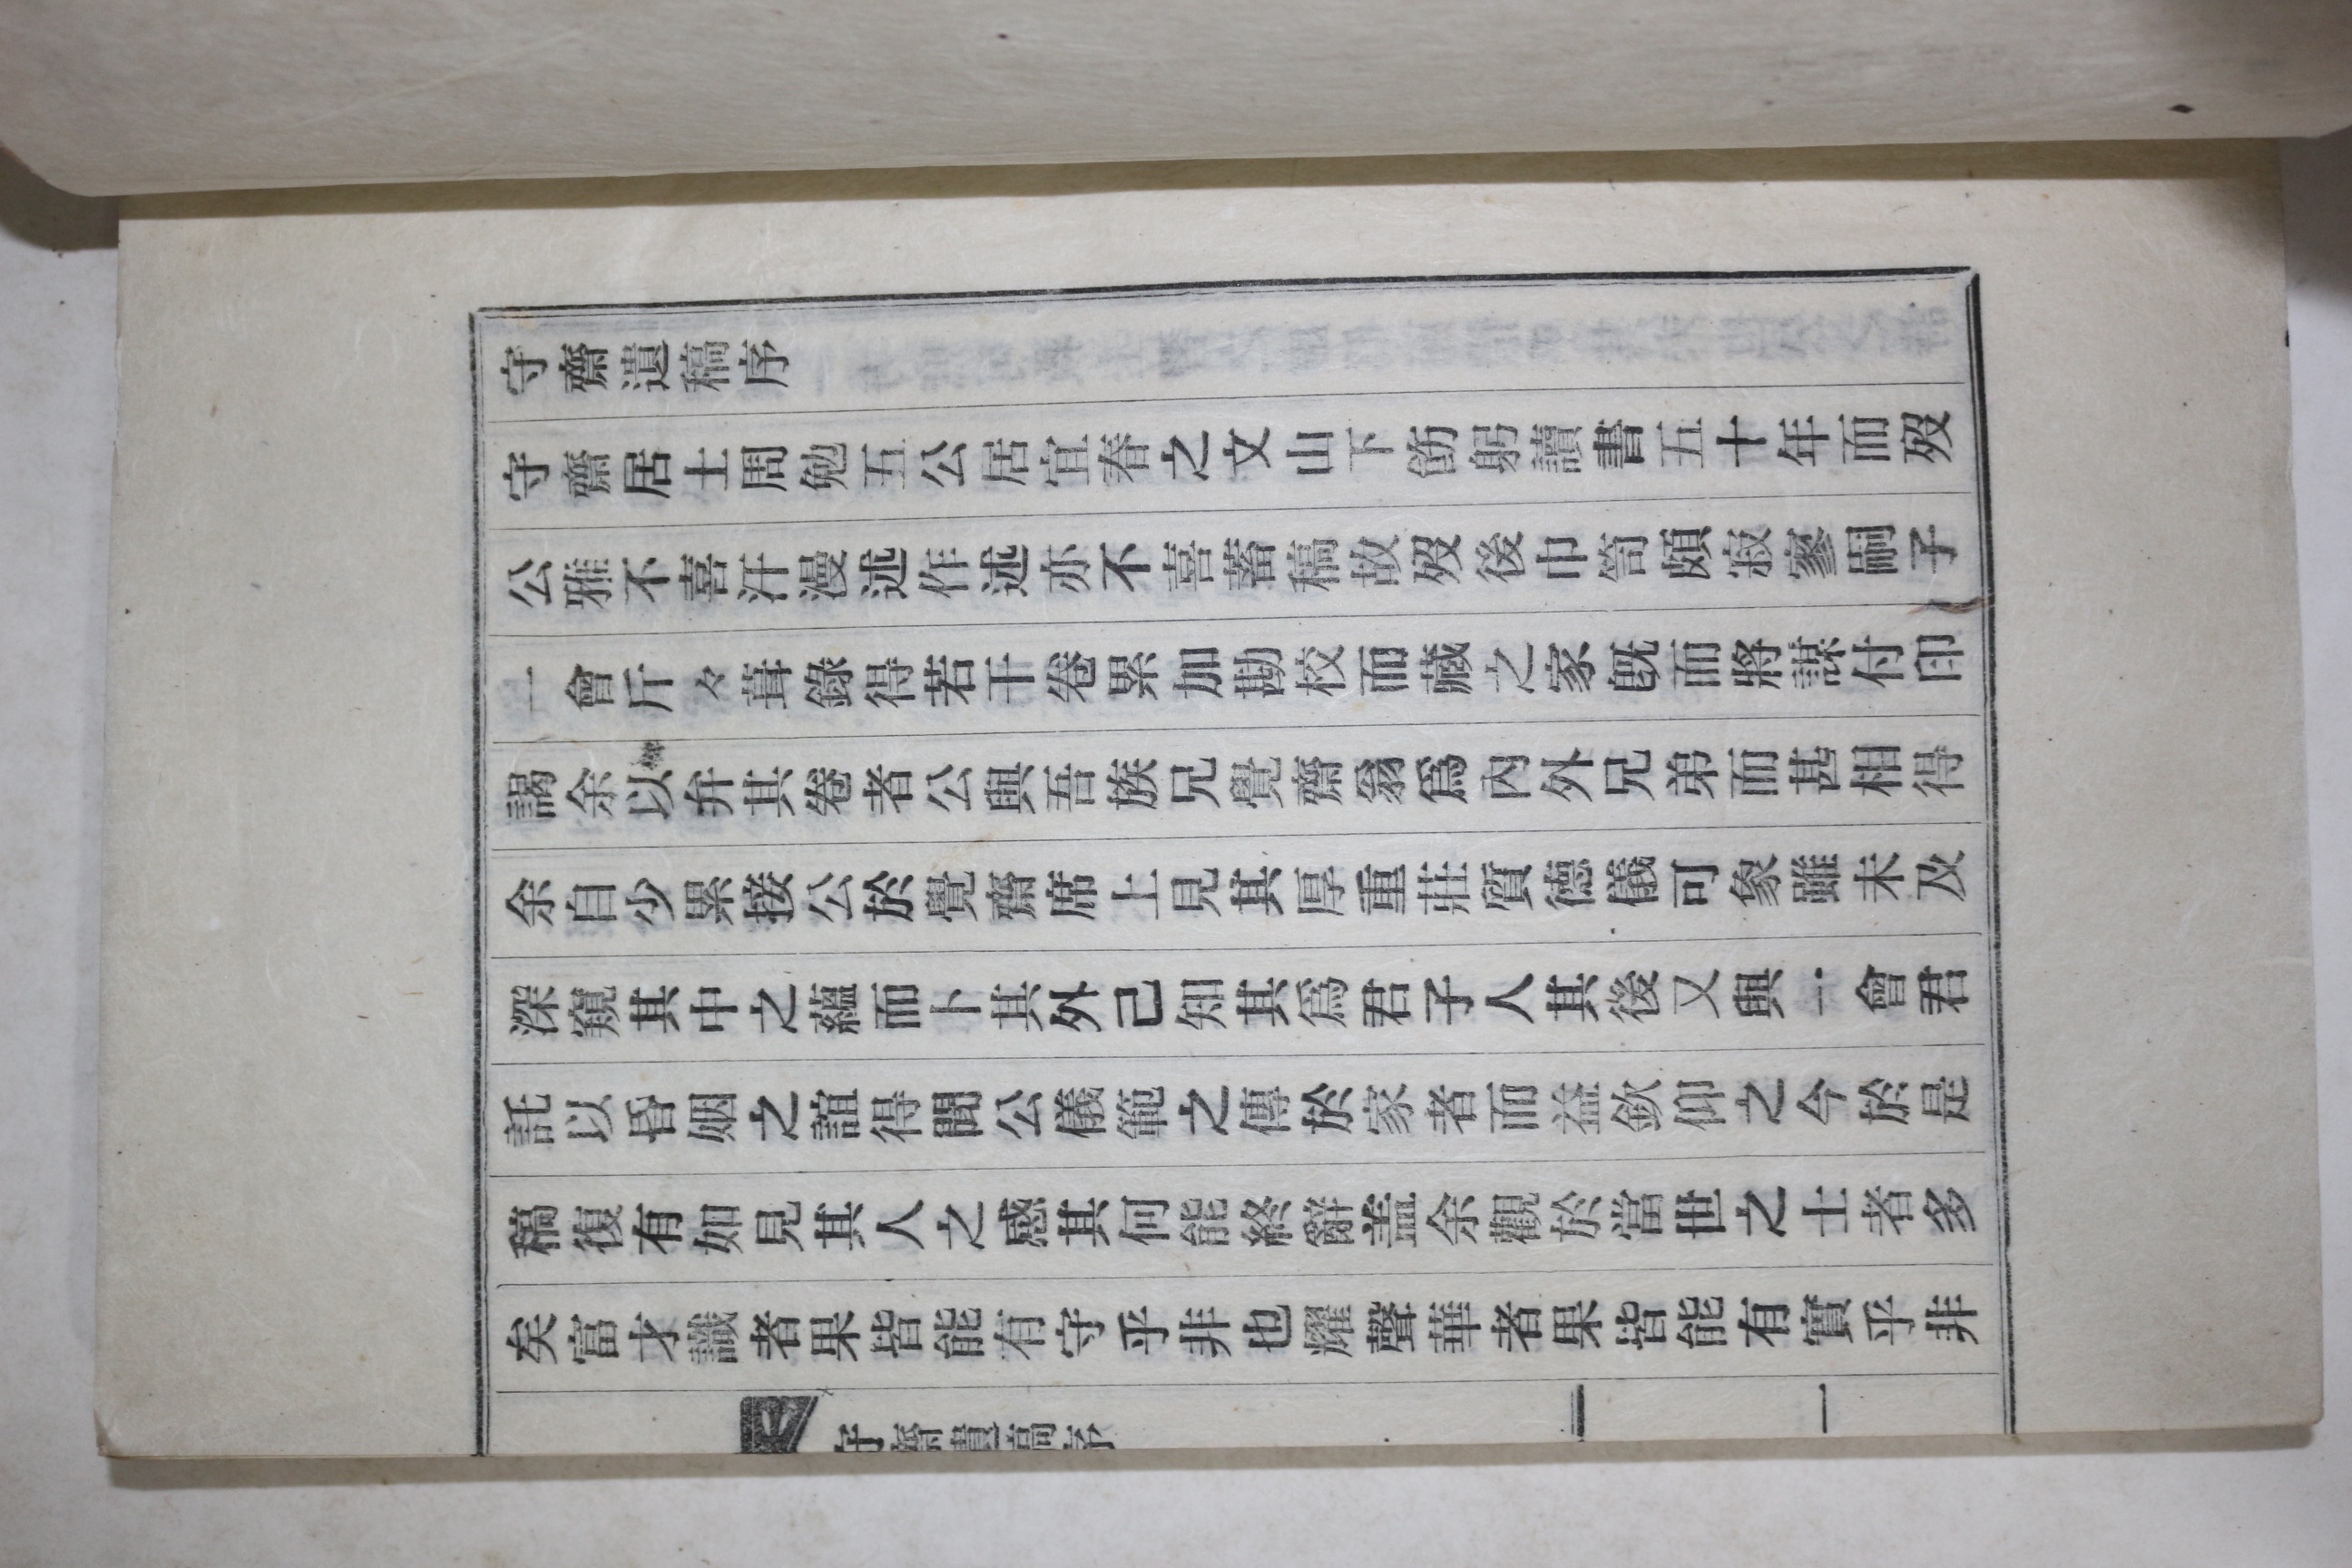 守齋遺稿序
守齋居士周勉五公居宜春之文山下飭躬讀書五十年而歿
公雅不喜汗漫述作述亦不喜蓄稿故歿後巾笥頗寂寥嗣子
一會斤々葺錄得若干卷累加勘校而藏之家旣而將謀付印
謁余以弁其卷者公與吾族兄覺齋翁爲內外兄弟而甚相得
余自少累接公於覺齋席上見其厚重莊質德儀可象雖未及
深窺其中之蘊而卜其外已知其爲君子人其後又與一會君
託以昏姻之誼得聞公儀範之傳於家者而益欽仰之今於是
稿復有如見其人之感其何能終辭盖余觀於當世之士者多
矣富才識者果皆能有守乎非也耀聲華者果皆能有實乎非
守齋遺稿序 一